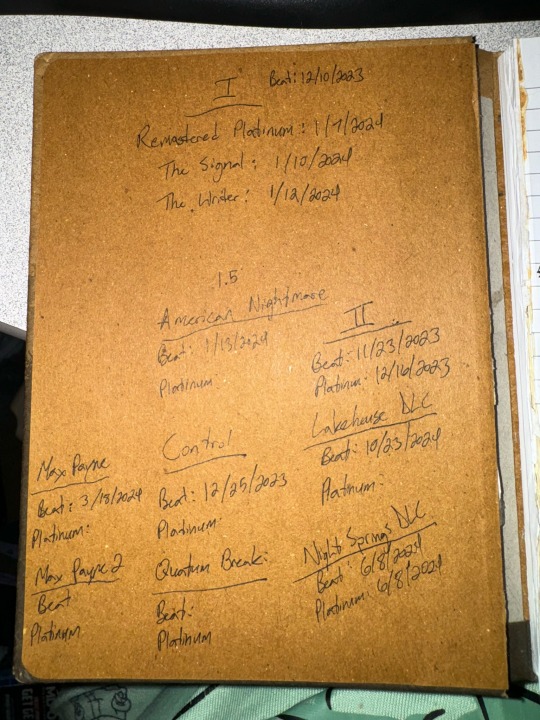 I
Beat: 12/10/2023
Remastered Platinum: 1/7/2024
The Signal: 1/10/2024
The Writer: 1/12/2024
1.5
American Nightmare
Beat: 1/13/2024
Platinum
II
Beat: 11/23/2023
Platinum: 12/16/2023
Lakehouse DLC
Beat: 10/23/2024
Platinum:
Control
Beat: 12/25/2023
Platinum:
Max Payne
Beat: 3/18/2024
Platinum:
Night Springs DLC
Beat: 6/8/2024
Platinum: 6/8/2024
Quatum Break:
Beat:
Platinum
Max Payne 2
Beat
Platinum